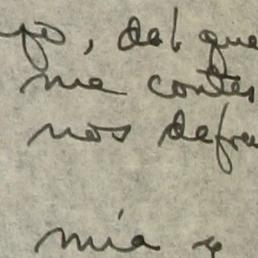 yo, del que
me contes
nos defra
mía y